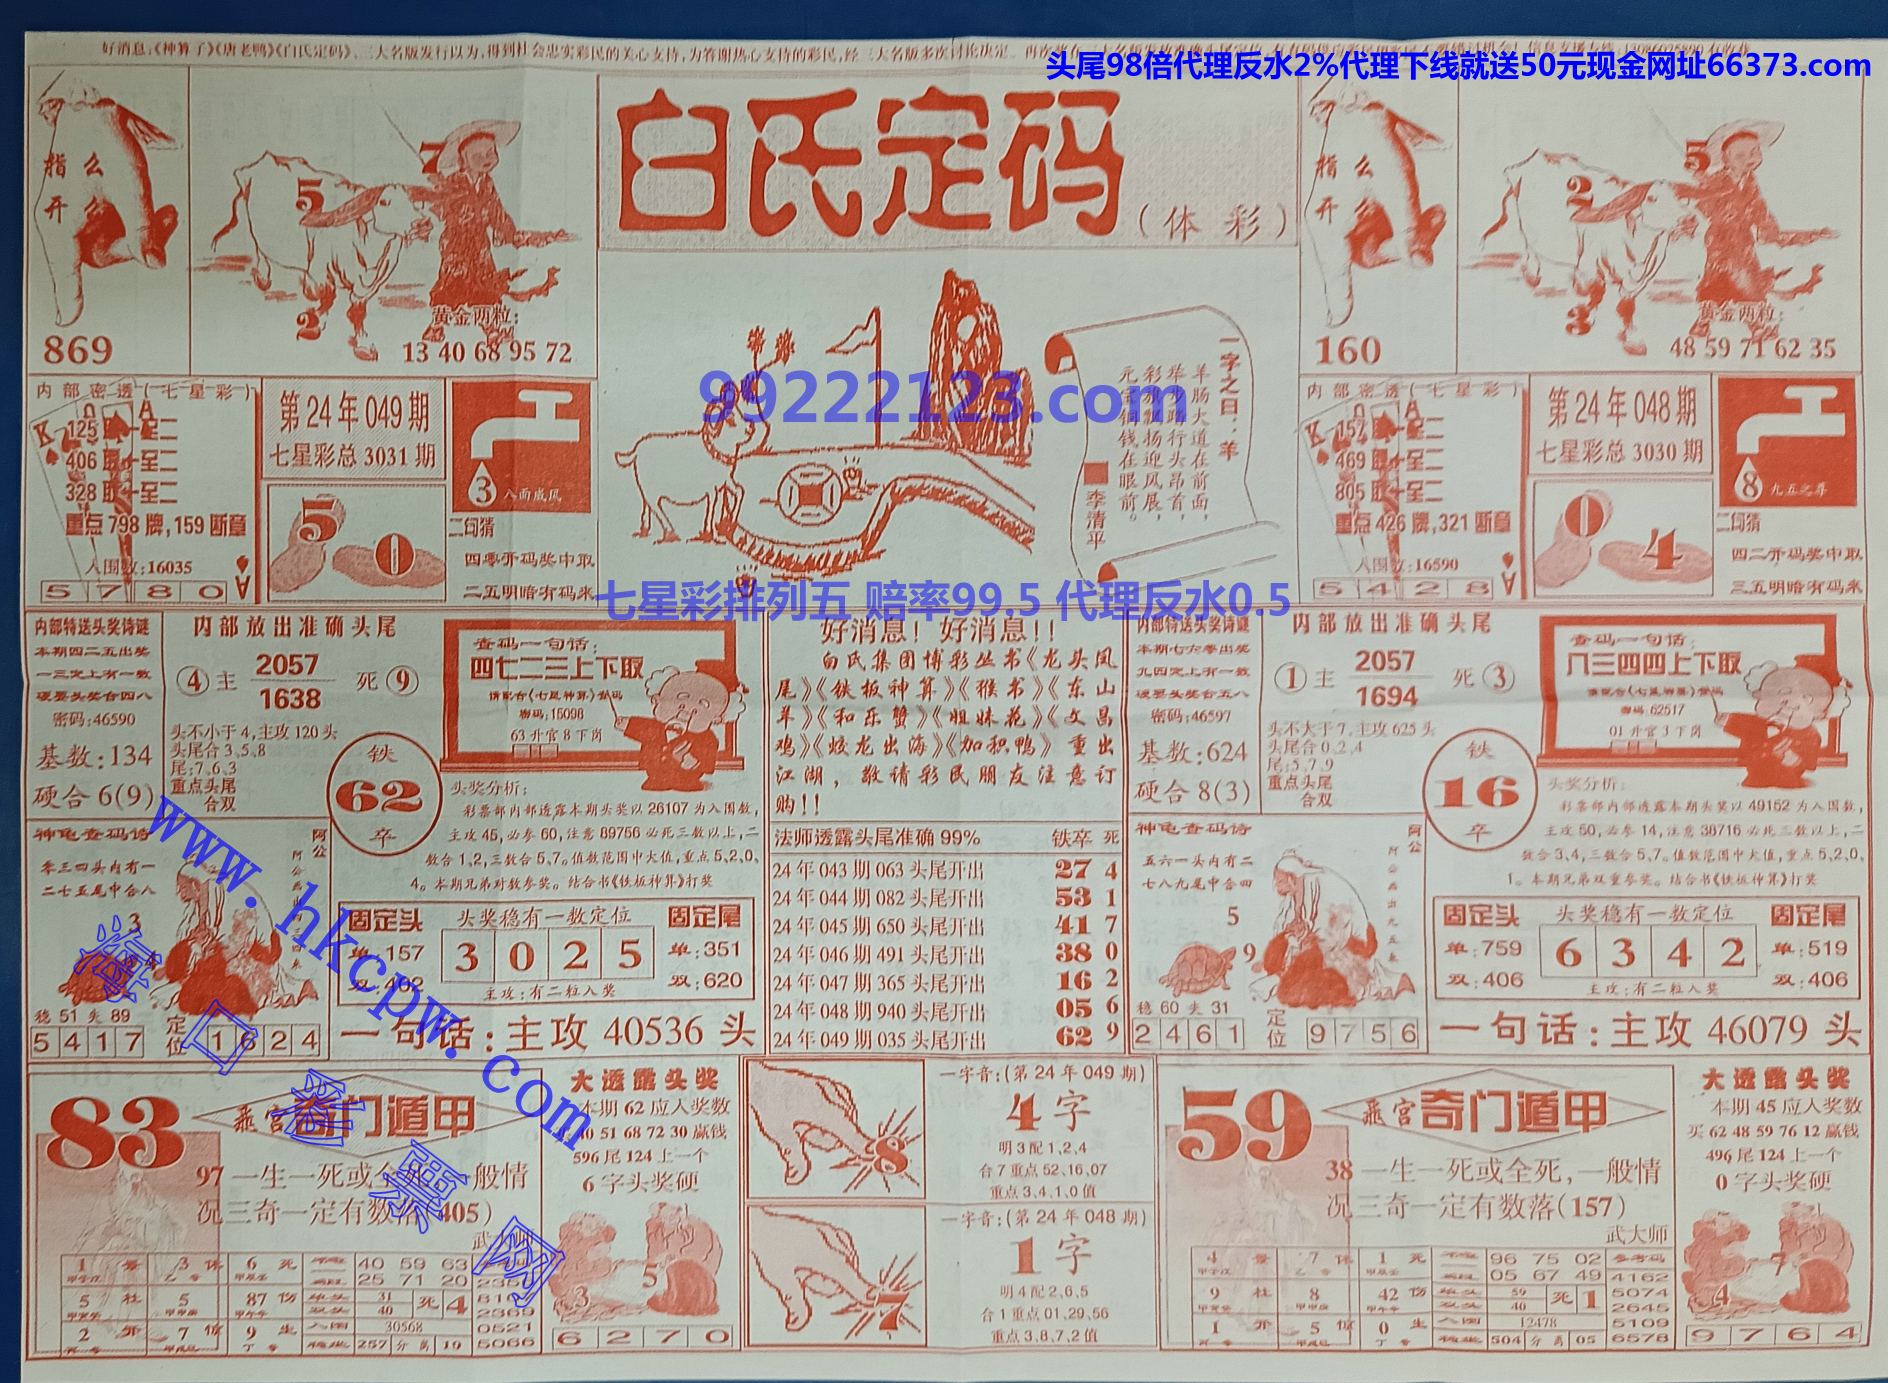 好消息:《神算子》《唐老鸭》《白氏定码》、三大名版发行以为,得到社会忠实彩民的关心支持,为答谢热心支持的彩民,经三大名版多次讨论决定
头尾98倍代理反水2%代理下线就送50元现金网址66373.com
指么
开么
869
5
7
2
黄金两粒:
13 40 68 95 72
白氏定码
(体彩)
指么
开么
160
2
5
3
黄金两粒:
48 59 71 62 35
内部密透(七星彩)
125 取十至二
406 取十至二
328 取十至二
重点798牌,159断章
入围数:16035
5 7 8 0 0
第24年049期
七星彩总3031期
5
0
3 八面威风
二句猜
四零开码奖中取
二五明暗有码来
99222123.com
一字之曰:羊
羊肠大道在前面,
举步踏行头昂首,
彩旗飘扬迎风展,
元宝铜钱在眼前。
李清平
七星彩排列五 赔率99.5 代理反水0.5
内部密透(七星彩)
157 取十至二
469 取十至二
805 取十至二
重点426牌,321断章
入围数:16590
5 4 2 8
第24年048期
七星彩总3030期
0
4
8 九五之尊
二句猜
四二开码奖中取
三五明暗有码来
内部特送头奖诗谜
本期四二五出奖
一三定上有一数
硬要头奖合四八
密码:46590
基数:134
硬合6(9)
内部放出准确头尾
4 主 2057 死 9
1638
头不小于4,主攻120头
头尾合3,5,8
尾:7,6,3
重点头尾
合双
铁
62
卒
查码一句话:
四七二三上下取
请配合《七星神算》查码
密码:15098
63升官8下岗
头奖分析:
彩票部内部透露本期头奖以26107为入围数,
主攻45,必参60,注意89756必死三数以上,二
数合1,2,三数合5,7。值数范围中大值,重点5,2,0,
4。本期兄弟对数参奖。结合书《铁板神算》打奖
好消息!好消息!!
白氏集团博彩丛书《龙头凤
尾》《铁板神算》《猴书》《东山
羊》《和乐蟹》《姐妹花》《文昌
鸡》《蛟龙出海》《加积鸭》重出
江湖,敬请彩民朋友注意订
购!!
法师透露头尾准确99% 铁卒 死
24年043期063头尾开出 27 4
24年044期082头尾开出 53 1
24年045期650头尾开出 41 7
24年046期491头尾开出 38 0
24年047期365头尾开出 16 2
24年048期940头尾开出 05 6
24年049期035头尾开出 62 9
内部特送头奖诗谜
本期七六零出奖
九四定上有一数
硬要头奖合五八
密码:46597
基数:624
硬合8(3)
内部放出准确头尾
1 主 2057 死 3
1694
头不大于7,主攻625头
头尾合0,2,4
尾:5,7,9
重点头尾
合双
铁
16
卒
查码一句话:
八三四四上下取
请配合《七星神算》查码
密码:62517
01升官3下岗
头奖分析:
彩票部内部透露本期头奖以49152为入围数,
主攻50,必参14,注意38716必死三数以上,二
数合3,4,三数合5,7。值数范围中大值,重点5,2,0,
1。本期兄弟双重参奖。结合书《铁板神算》打奖
神龟查码诗
零三四头内有一
二七五尾中合八
阿公
3
稳51失89
5 4 1 7
定位
1 6 2 4
固定头
单:157
双:402
头奖稳有一数定位
3 0 2 5
主攻:有二粒入奖
固定尾
单:351
双:620
一句话:主攻40536头
神龟查码诗
五六一头内有二
七八九尾中合四
阿公
5
9
稳60失31
2 4 6 1
定位
9 7 5 6
固定头
单:759
双:406
头奖稳有一数定位
6 3 4 2
主攻:有二粒入奖
固定尾
单:519
双:406
一句话:主攻46079头
www.hkcpw.com
海口彩票网
83
飞宫奇门遁甲
97一生一死或全死,一般情
况三奇一定有数落(405)
武大师
1 景 3 休 6 死 40 59 63
25 71 20
5 杜 5 87 伤 单头 31 死 4
双头 40
2369
2 开 7 惊 9 生 入围 30568 0521
257 分离 19 5066
大透露头奖
本期62应入奖数
40 51 68 72 30赢钱
596尾124上一个
6字头奖硬
5
3
6 2 7 0
8
一字音:(第24年049期)
4字
明3配1,2,4
合7重点52,16,07
重点3,4,1,0值
7
一字音:(第24年048期)
1字
明4配2,6,5
合1重点01,29,56
重点3,8,7,2值
59
飞宫奇门遁甲
38一生一死或全死,一般情
况三奇一定有数落(157)
武大师
4 景 7 休 1 死 96 75 02 参考码
05 67 49 4162
9 杜 8 42 伤 单头 59 死 1 5074
双头 40 2645
1 开 5 惊 0 生 入围 12478 5109
504 分离 05 6578
大透露头奖
本期45应入奖数
买62 48 59 76 12赢钱
496尾124上一个
0字头奖硬
7
4
9 7 6 4